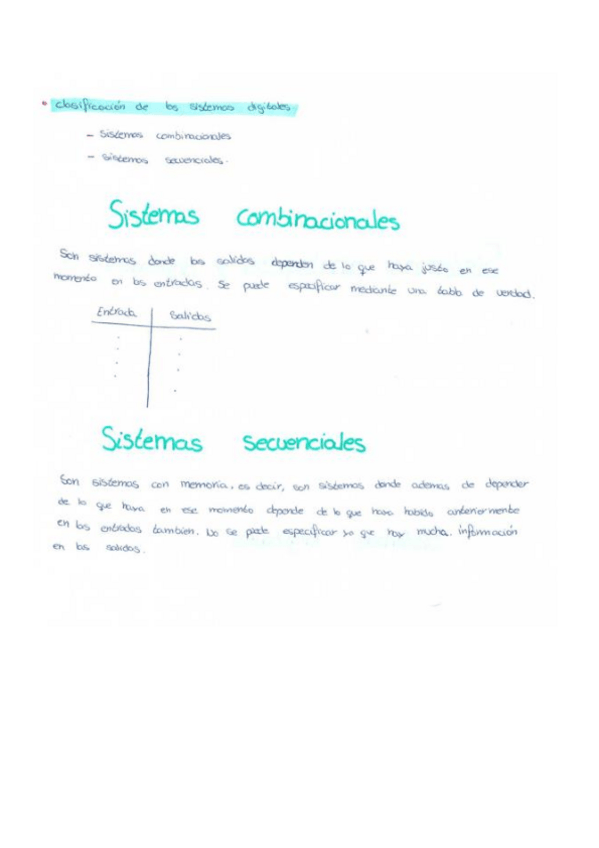 • Clasificación de los sistemas digitales.
- Sistemas combinacionales
- Sistemas secuenciales.
Sistemas combinacionales
Son sistemas donde las salidas dependen de lo que haya justo en ese
momento en las entradas. Se puede especificar mediante una tabla de verdad.
Entrada Salidas
Sistemas secuenciales
Son sistemas con memoria, es decir, son sistemas donde ademas de depender
de lo que haya en ese momento depende de lo que haya habido anteriormente
en las entradas tambien. No se puede especificar ya que hay mucha información
en las salidas.